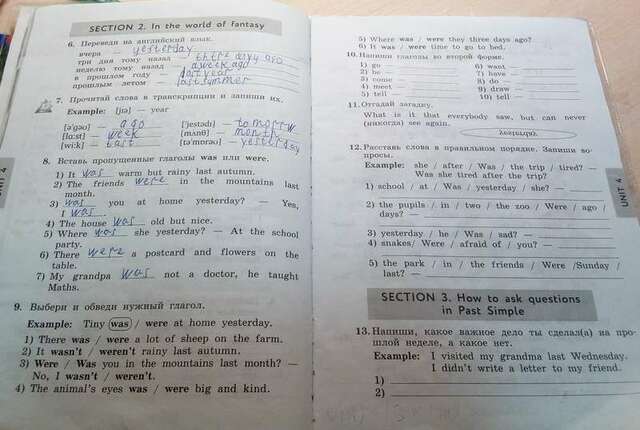 SECTION 2. In the world of fantasy
6. Переведи на английский язык.
вчера — yesterday
три дня тому назад three days ago
неделю тому назад a week ago
в прошлом году — last year
прошлым летом — last summer
7. Прочитай слова в транскрипции и запиши их.
Example: [jɪə] — year
[ə'gəʊ] ago ['jestədɪ] — to morrw
[lɑ:st] week [mʌnθ] month
[wi:k] last [tə'mɒrəʊ] — yesterday
8. Вставь пропущенные глаголы was или were.
1) It was warm but rainy last autumn.
2) The friends were in the mountains last
month.
3) was you at home yesterday? — Yes,
I was.
4) The house was old but nice.
5) Where was she yesterday? — At the school
party.
6) There were a postcard and flowers on the
table.
7) My grandpa was not a doctor, he taught
Maths.
9. Выбери и обведи нужный глагол.
Example: Tiny was / were at home yesterday.
1) There was / were a lot of sheep on the farm.
2) It wasn't / weren't rainy last autumn.
3) Were / Was you in the mountains last month? —
No, I wasn't / weren't.
4) The animal's eyes was / were big and kind.
UNIT 4
5) Where was / were they three days ago?
6) It was / were time to go to bed.
10. Напиши глаголы во второй форме.
1) go — 6) want —
2) be — 7) have —
3) come — 8) do —
4) meet — 9) draw —
5) tell — 10) tell —
11. Отгадай загадку.
What is it that everybody saw, but can never
(никогда) see again.
12. Расставь слова в правильном порядке. Запиши во-
просы.
Example: she / after / Was / the trip / tired? —
Was she tired after the trip?
1) school / at / Was / yesterday / she? —
2) the pupils / in / two / the zoo / Were / ago /
days? —
3) yesterday / he / Was / sad? —
4) snakes/ Were / afraid of / you? —
5) the park / in / the friends / Were /Sunday /
last? —
SECTION 3. How to ask questions
in Past Simple
13. Напиши, какое важное дело ты сделал(а) на про-
шлой неделе, а какое нет.
Example: I visited my grandma last Wednesday.
I didn't write a letter to my friend.
1)
2)
UNIT 4